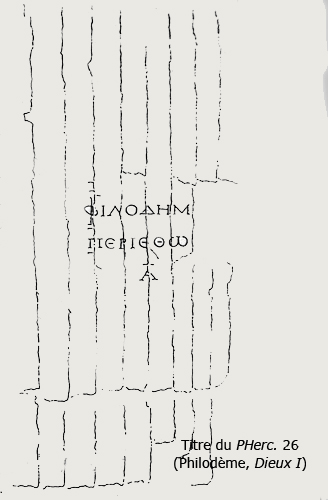 ΦΙΛΟΔΗΜ
ΠΕΡΙΘΕΩ
Α
Titre du PHerc. 26
(Philodème, Dieux I)